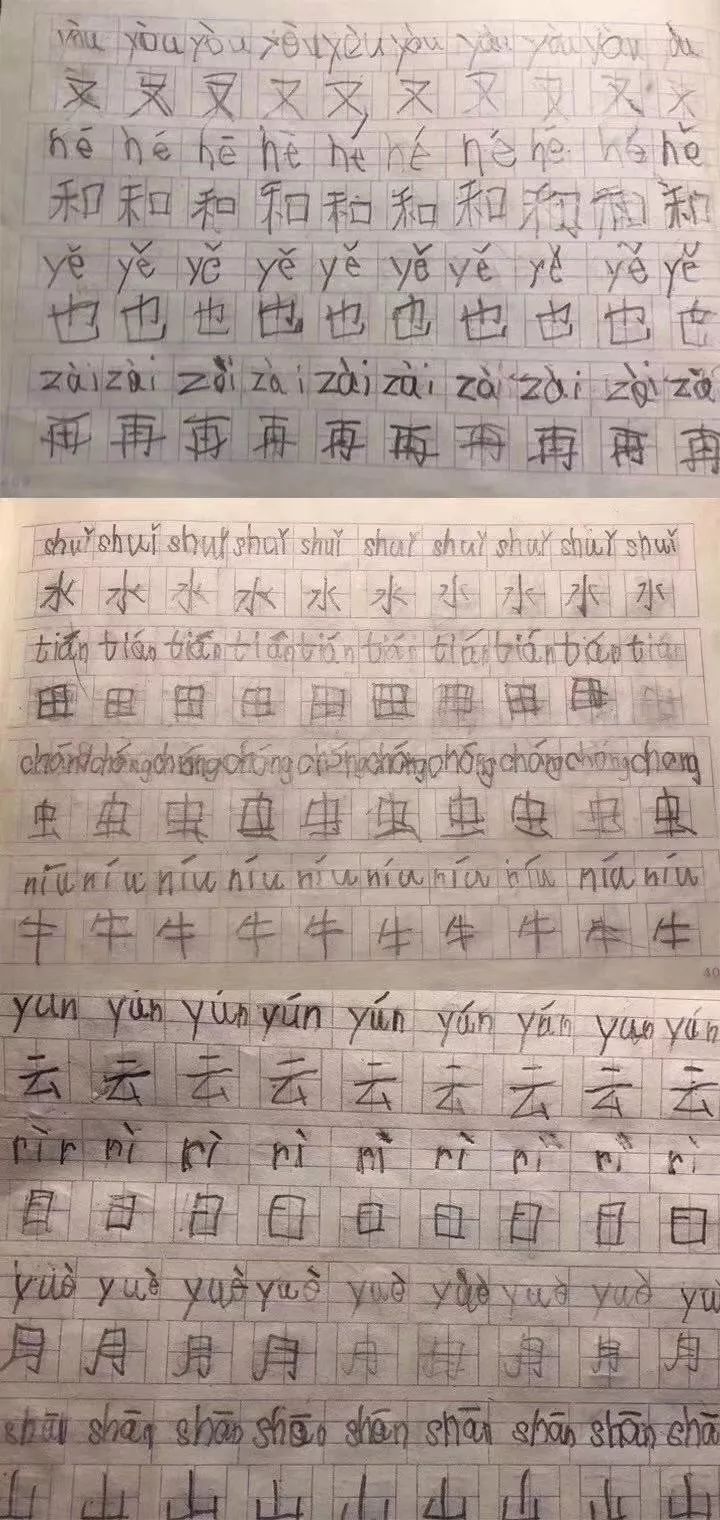 yòu yòu yòu yòu yòu yòu yòu yòu
又 又 又 又 又 又 又 又 又 又
hé hé hē hé hé hé hé hé hé hě
和 和 和 和 和 和 和 和 和 和
yě yě yě yě yě yě yě yě yě yě
也 也 也 也 也 也 也 也 也 也
zài zài zài zài zài zài zài zài zài
再 再 再 再 再 再 再 再 再 再
shuǐ shuǐ shuǐ shuǐ shuǐ shuǐ shuǐ shuǐ shuǐ shuǐ
水 水 水 水 水 水 水 水 水 水
tián tián tián tián tián tián tián tián tián tián
田 田 田 田 田 田 田 田 田
chóng chóng chóng chóng chóng chóng chóng chong
虫 虫 虫 虫 虫 虫 虫 虫 虫 虫
níu níu níu níu níu níu níu níu níu níu
牛 牛 牛 牛 牛 牛 牛 牛 牛 牛
40
yun yún yún yún yún yún yún yun yún
云 云 云 云 云 云 云 云 云
rì rì rì rì rì rì rì rì
日 日 日 日 日 日 日 日 日
yuè yuè yuè yuè yuè yuè yuè yuè yu
月 月 月 月 月 月 月 月 月
shān shān shān shān shān shān shān shān shā
山 山 山 山 山 山 山 山 山